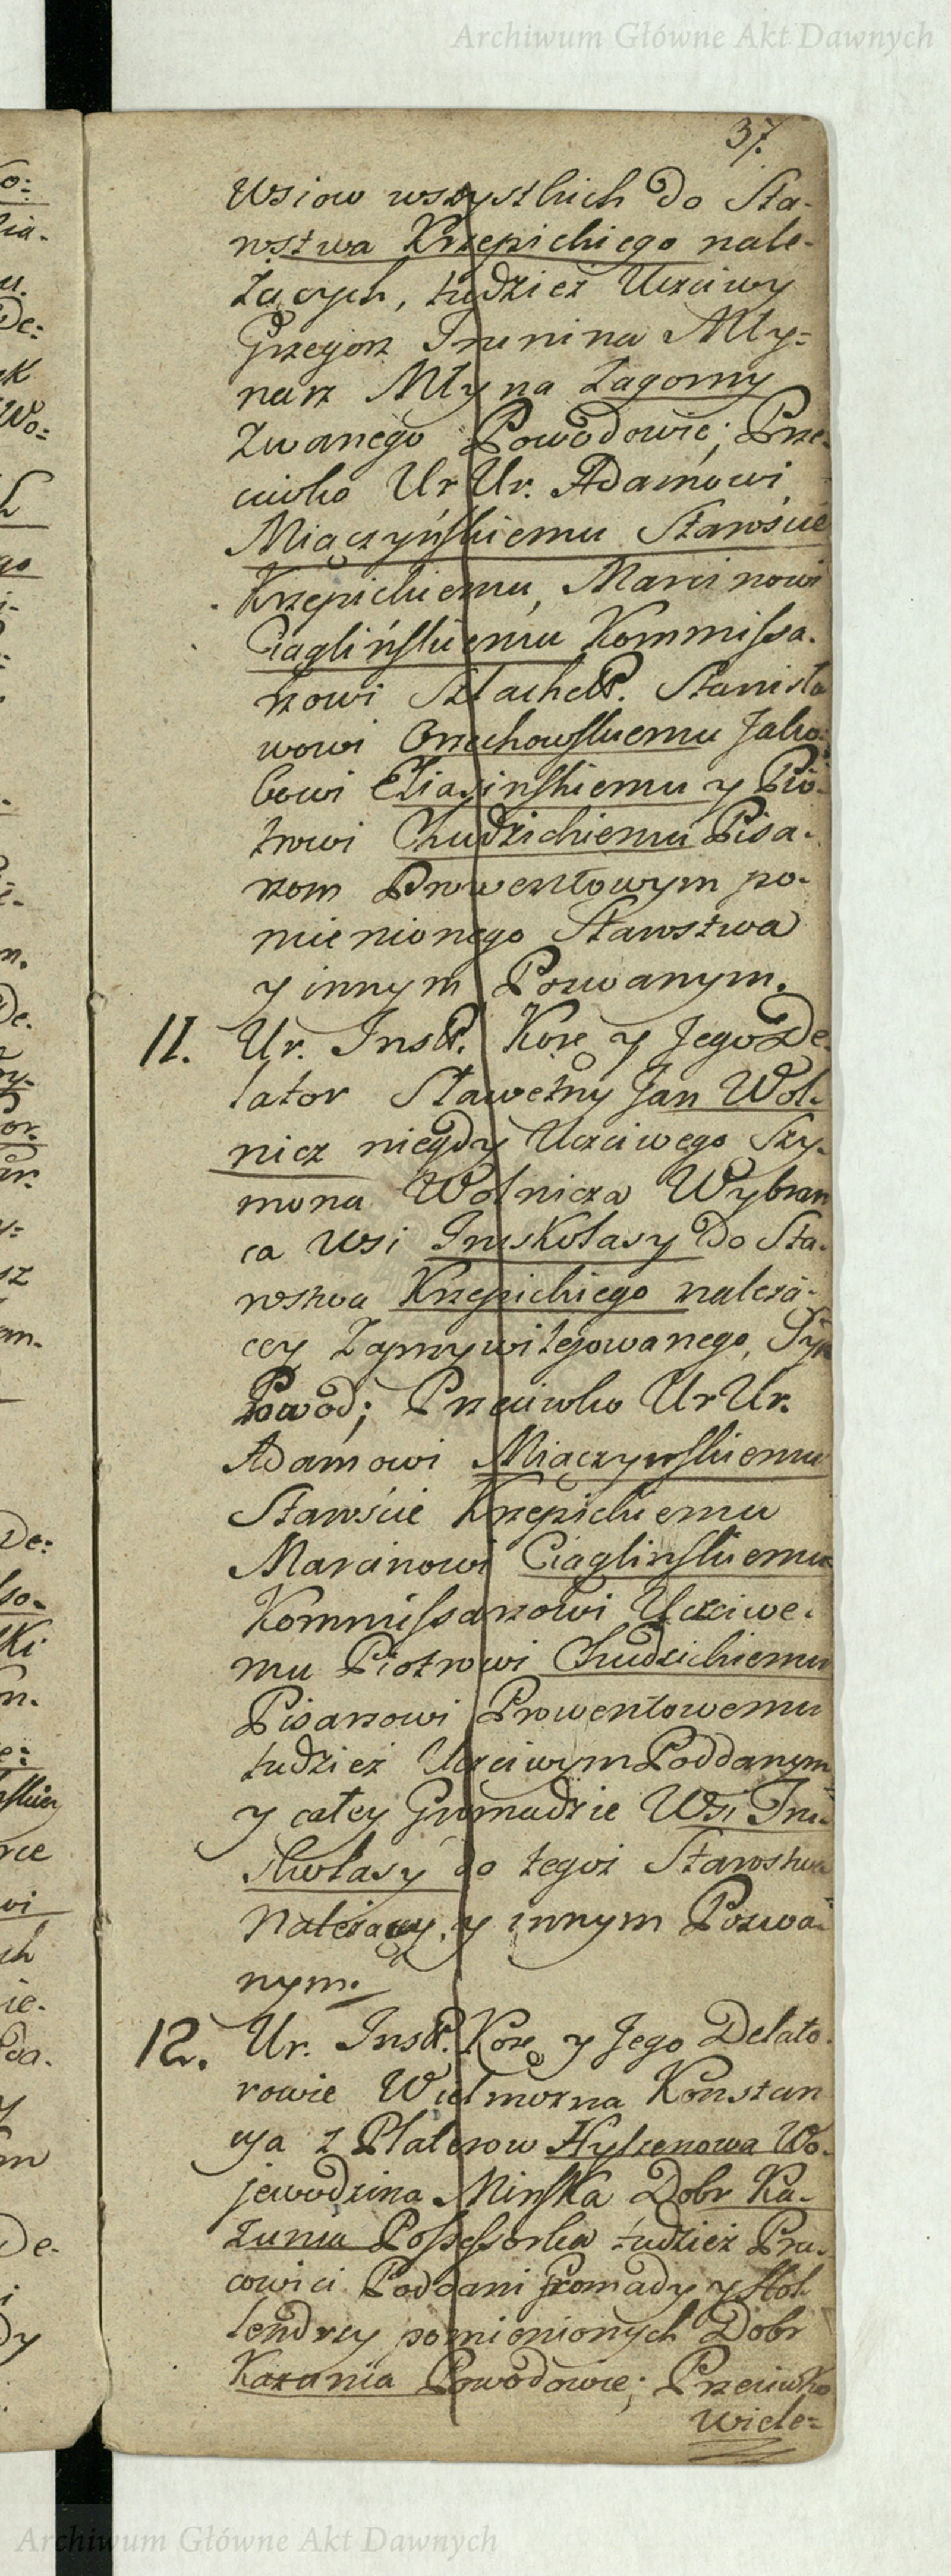 Archiwum Główne Akt Dawnych
37.
Wsiow wszystkich do Sta-
rostwa Krzepickiego nale-
żących, tudzież Uczciwy
Grzegorz Trunina Mły=
narz Młyna Zagorny
zwanego Powodowie; Prze-
ciwko Ur Ur. Adamowi
Miączyńskiemu Starościе
Krzepickiemu, Marcinowi
Ciaglińskiemu Kommissa-
rzowi Szlachet. Stanisła
wowi Orzechowskiemu Jako:
bowi Eliasinskiemu y Pio-
trowi Chudzickiemu Pisa-
rzom Prowentowym po-
mienionego Starostwa
y innym Pozwanym.
11. Ur. Inst. Kore y Jego De-
lator Sławetny Jan Wol-
nicz niegdy Uczciwego Szy-
mona Wolnicza Wybran
ca wsi Truskolasy do Sta-
rostwa Krzepickiego należą-
cey Zaprzywilejowanego, Syn
Powod; Przeciwko Ur Ur.
Adamowi Miączynskiemu
Staroście Krzepickiemu
Marcinowi Ciaglinskiemu
Kommissarzowi Uczciwe-
mu Piotrowi Chudzickiemu
Pisarzowi Prowentowemu
tudzież Uczciwym Poddanym
y całey Gromadzie Wsi Tru-
skolasy do tegoż Starostwa
Należący, y innym Pozwa-
nym.
12. Ur. Inst. Kore y Jego Delato-
rowie Wielmożna Konstan
cya z Platerow Hylzenowa Wo-
jewodzina Minska Dobr Ka-
zunia Possessorka tudzież Pra-
cowici Poddani Gromady y Hol
lendrzy pomienionych Dobr
Kazania Powodowie; Przeciwko
Wiele=
Archiwum Główne Akt Dawnych